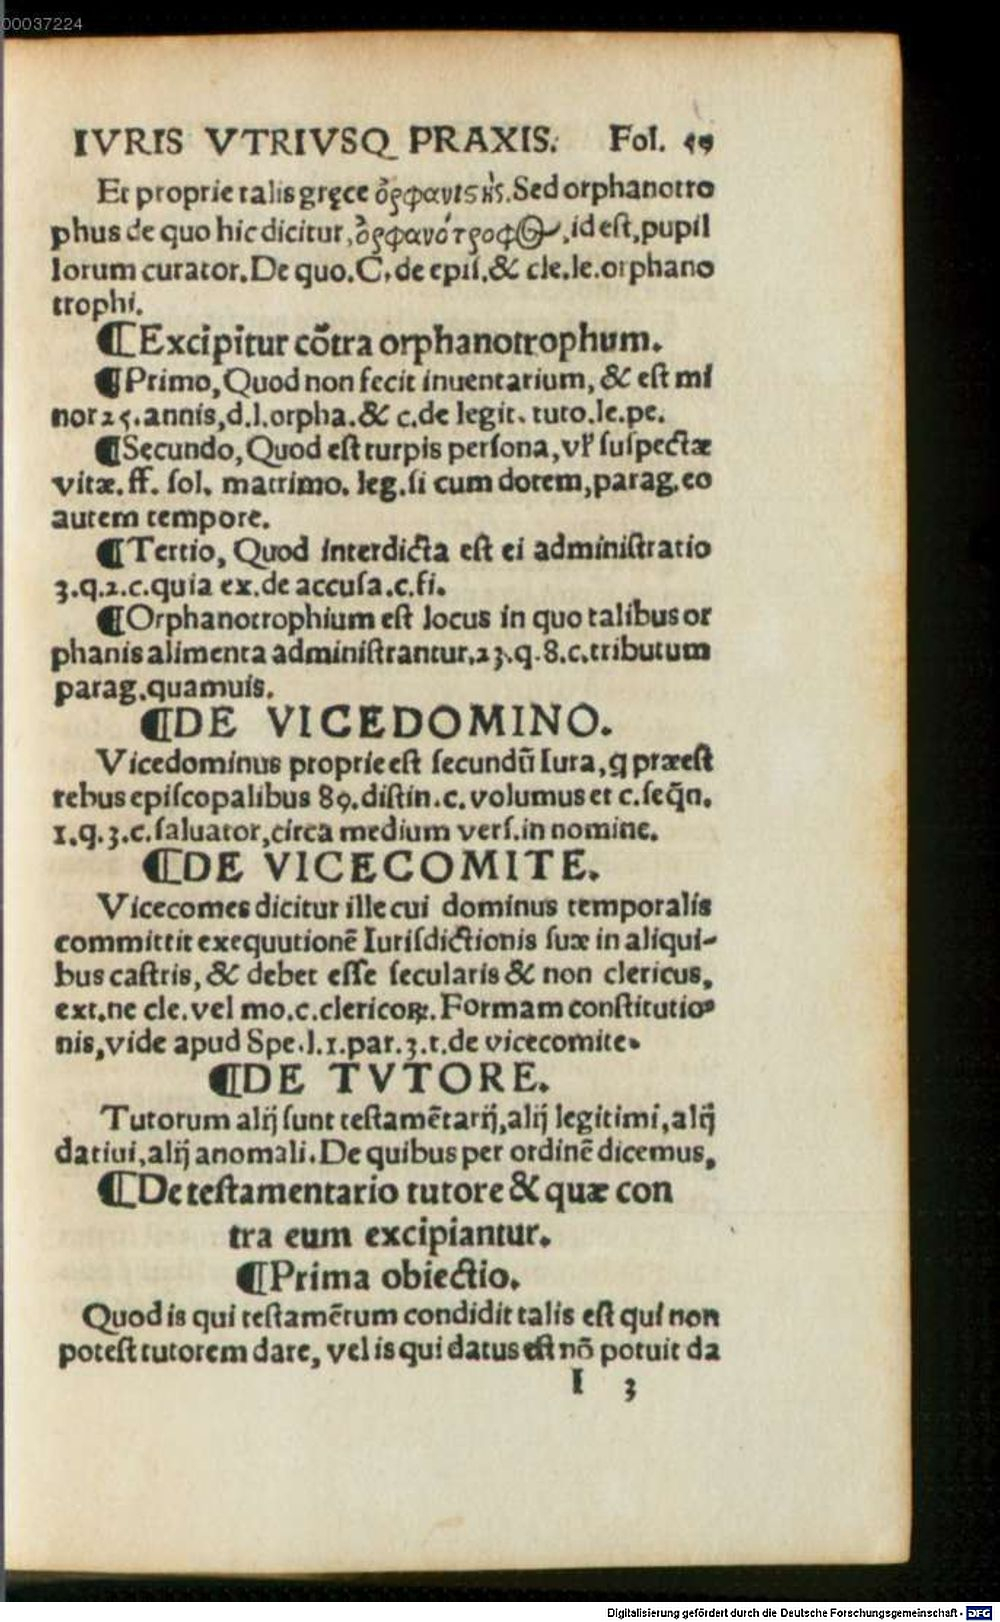 00037224
IVRIS VTRIVSQ PRAXIS. Fol. 59
Et proprie talis gręce ὀρφανιστὴς. Sed orphanotro
phus de quo hic dicitur, ὀρφανότροφος, id est, pupil
lorum curator. De quo. C. de epiſ. & cle. le. orphano
trophi.
¶Excipitur cõtra orphanotrophum.
¶Primo, Quod non fecit inuentarium, & est mi
nor 25. annis, d. l. orpha. & c. de legit. tuto. le. pe.
¶Secundo, Quod eſt turpis perſona, vł ſuſpectæ
vitæ. ff. ſol. matrimo. leg. ſi cum dotem, parag. eo
autem tempore.
¶Tertio, Quod interdicta eſt ei adminiſtratio
3. q. 2. c. quia ex. de accuſa. c. fi.
¶Orphanotrophium eſt locus in quo talibus or
phanis alimenta adminiſtrantur. 23. q. 8. c. tributum
parag. quamuis.
¶DE VICEDOMINO.
Vicedominus proprie eſt ſecundũ Iura, q præeſt
rebus epiſcopalibus 89. diſtin. c. volumus et c. ſeq̃n.
1. q. 3. c. ſaluator, circa medium verſ. in nomine.
¶DE VICECOMITE.
Vicecomes dicitur ille cui dominus temporalis
committit exequutionẽ Iuriſdictionis ſuæ in aliqui-
bus caſtris, & debet eſſe ſecularis & non clericus,
ext. ne cle. vel mo. c. clericoꝝ. Formam conſtitutio-
nis, vide apud Spe. l. 1. par. 3. t. de vicecomite.
¶DE TVTORE.
Tutorum alij ſunt teſtamẽtarij, alij legitimi, alij
datiui, alij anomali. De quibus per ordinẽ dicemus,
¶De teſtamentario tutore & quæ con
tra eum excipiantur.
¶Prima obiectio.
Quod is qui teſtamẽtum condidit talis eſt qui non
poteſt tutorem dare, vel is qui datus eſt nõ potuit da
I 3
Digitalisierung gefördert durch die Deutsche Forschungsgemeinschaft - DFG